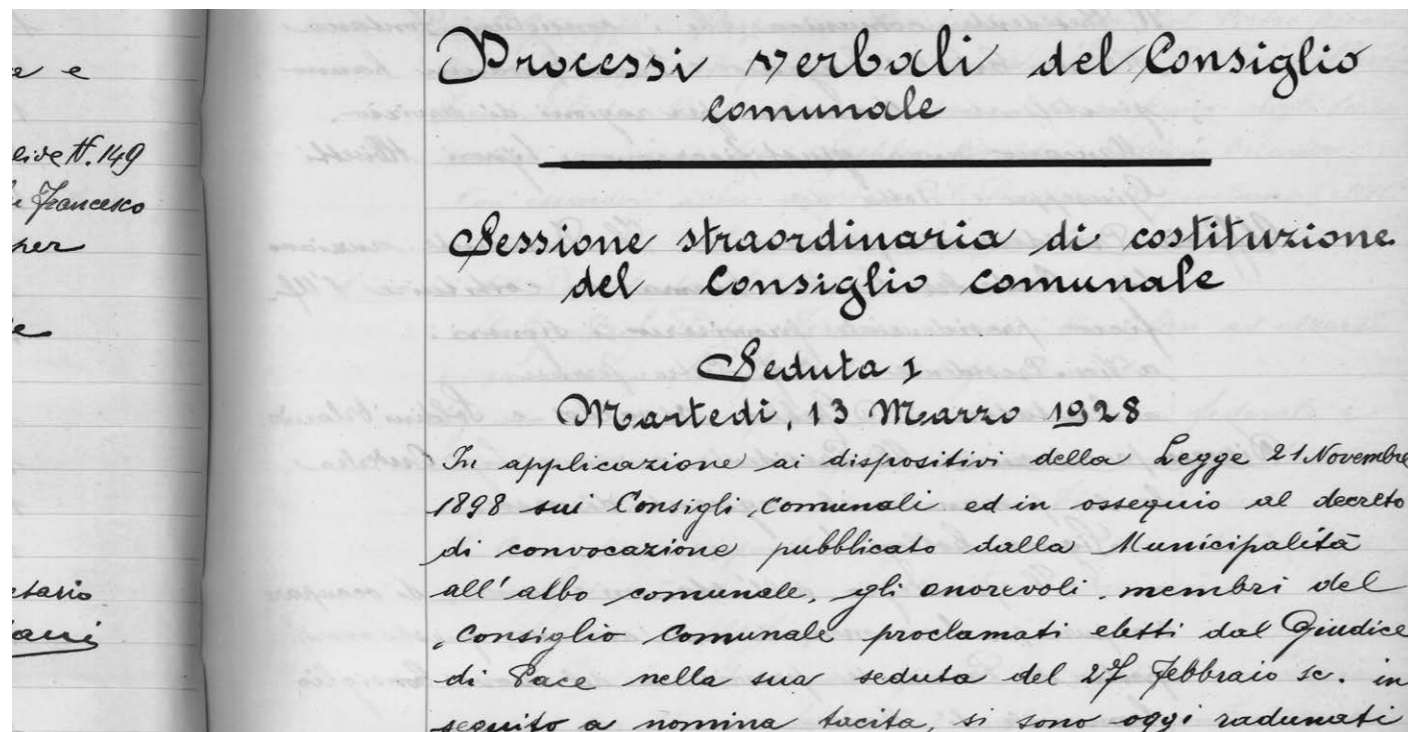 e e
N. 149
Francesco
per
Processi verbali del Consiglio
comunale
Sessione straordinaria di costituzione
del Consiglio comunale
Seduta 1
Martedì, 13 Marzo 1928
In applicazione ai dispositivi della Legge 21 Novembre
1898 sui Consigli comunali ed in ossequio al decreto
di convocazione pubblicato dalla Municipalità
all'albo comunale, gli onorevoli membri del
Consiglio Comunale proclamati eletti dal Giudice
di Pace nella sua seduta del 27 febbraio sc. in
seguito a nomina tacita, si sono oggi radunati